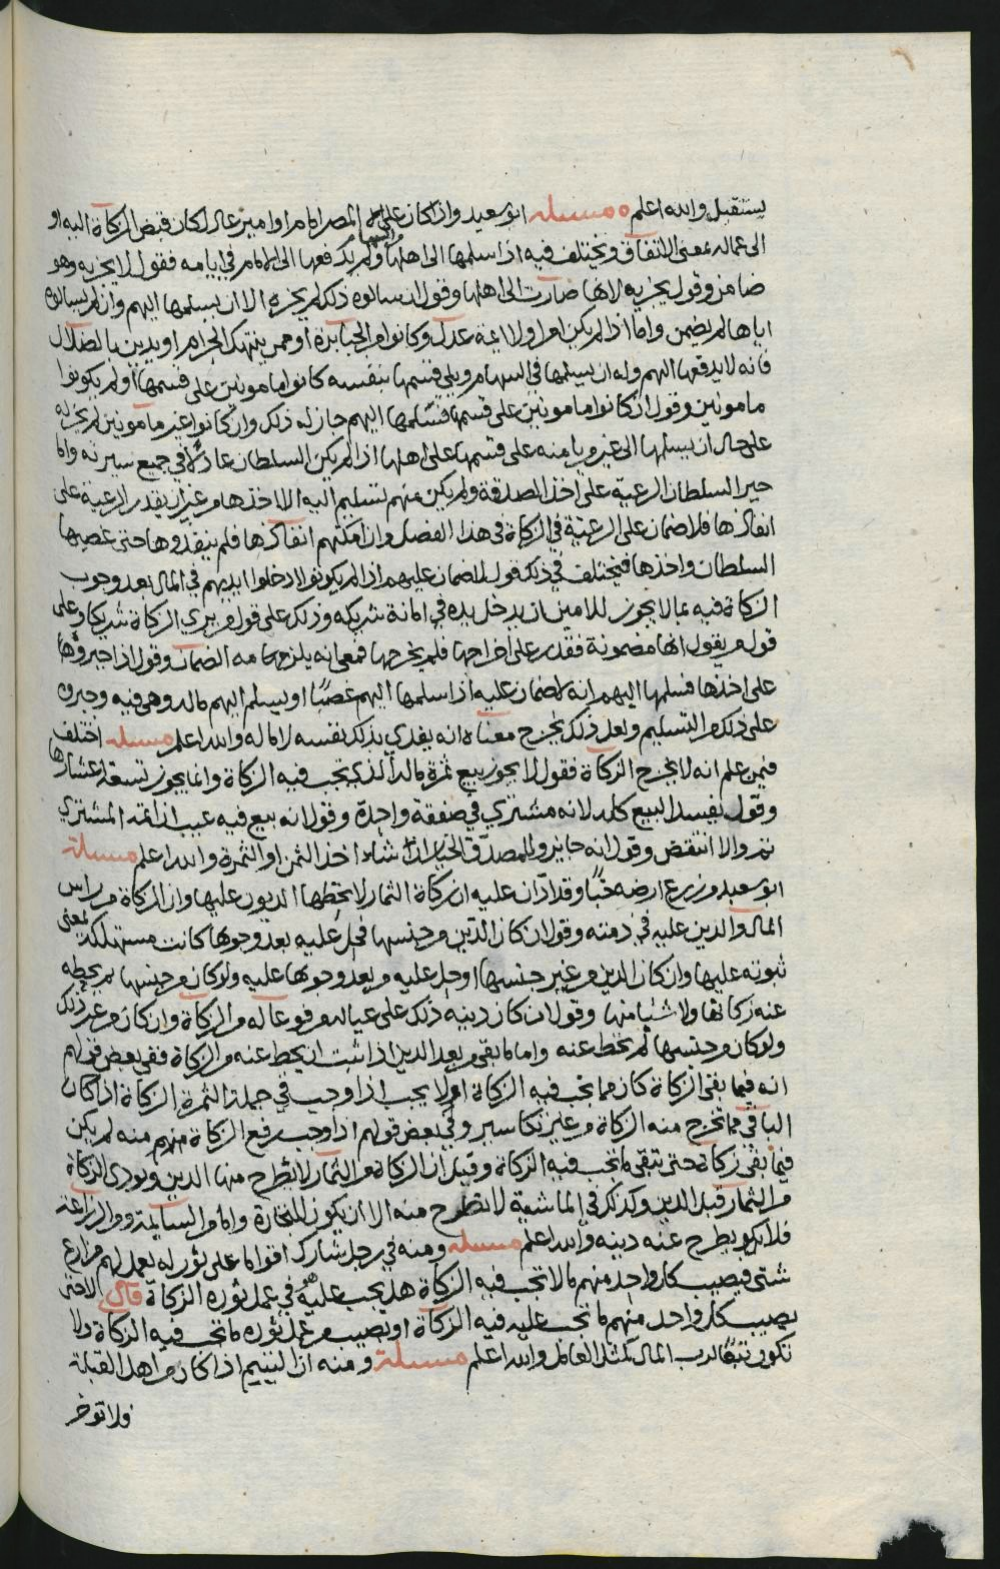 يستقبل والله اعلم ه مسئله ابو سعيد واذا كان على اهل المصر امام او امير عدل كان قبض الزكاة اليه او
الى عماله بمعنى الاتفاق ويختلف فيه اذا سلمها الى اهلها ولم يدفعها الى الامام في ايامه فقول لا يجزيه وهو
ضامن وقول يجزيه لانها صارت الى اهلها وقول ان سالوه ذلك لم يجزه الا ان يسلمها اليهم وان لم يسالوه
اياها لم يضمن واما اذا لم يكن امام ولا ايمة عدل وكانوا من الجبابرة او ممن ينتهك الحرام او يدين بالضلال
فانه لا يدفعها اليهم وله ان يسلمها في السهام ويلي قسمها بنفسه كانوا مامونين على قسمها او لم يكونوا
مامونين وقول ان كانوا مامونين على قسمها فسلمها اليهم جاز له ذلك وان كانوا غير مامونين لم يجز له
على حال ان يسلمها الى غير من يامنه على قسمها على اهلها اذا لم يكن السلطان عادلا في جميع سيرته واذا
جبر السلطان الرعية على اخذ الصدقة ولم يكن منهم تسليم اليه الا اخذها من غير ان يقدر الرعية على
انفاذها فلا ضمان على الرعية في الزكاة في هذا الفصل وان امكنهم انفاذها فلم ينفذوها حتى غصبها
السلطان واخذها فيختلف في ذلك فقول لا ضمان عليهم اذا لم يكونوا ادخلوا ايديهم في المال بعد وجوب
الزكاة فيه بما لا يجوز للامين ان يدخل يده في امانة شريكه وذلك على قول من يرى الزكاة شريكا وعلى
قول من يقول انها مضمونة فقدر على اخراجها فلم يخرجها فمعي انه يلزمه الضمان وقول اذا جبروه
على اخذها فسلمها اليهم انه لا ضمان عليه اذا سلمها اليهم غصبا او يسلم اليهم ماله وهي فيه وجبره
على ذلك من التسليم ولعل ذلك يخرج معناه انه يفدي بذلك نفسه او ماله والله اعلم مسئله اختلف
فيمن علم انه لا يخرج الزكاة فقول لا يجوز بيع ثمرة ماله الذي تجب فيه الزكاة وانما يجوز تسعة اعشارها
وقول يفسد البيع كله لانه مشتري في صفقة واحدة وقول انه بيع فيه عيب ان اتمه المشتري
تم والا انتقض وقول انه جايز وللمصدق الخيار ان شاء اخذ الثمن او الثمرة والله اعلم مسئلة
ابو سعيد من زرع ارضه حبا وقد ادّان عليه ان زكاة الثمار لا يحطها الديون عليها وان الزكاة من راس
المال والدين عليه في ذمته وقول ان كان الدين من جنسها فحل عليه بعد وجوبها كانت مستهلكة بمعنى
ثبوته عليها وان كان الدين من غير جنسها او حل عليه من بعد وجوبها عليه ولو كان من جنسها لم يحطه
عنه زكاتها ولا شيا منها وقول ان كان دينه ذلك على عياله مرفوعا له من الزكاة وان كان من غير ذلك
ولو كان من جنسها لم تحط عنه واما ما بقي من بعد الدين اذا ثبت ان يحط عنه من الزكاة ففي بعض قولهم
انه فيما بقي الزكاة كان مما تجب فيه الزكاة او لا يجب اذا وجب في جملة الثمرة الزكاة اذا كان
الباقي مما تخرج منه الزكاة من غير تكاسير وفي بعض قولهم اذا وجب رفع الزكاة منه لم يكن
فيما بقي زكاة حتى تبقى ما تجب فيه الزكاة وقيل ان الزكاة من الثمار لا تطرح منها الدين ويودى الزكاة
من الثمار قبل الدين وكذلك في الماشية لا تطرح منه الا ان يكون للتجارة واما من السايمة ومن الزراعة
فلا يطرح عنه دينه والله اعلم مسئله ومنه في رجل شارك اقواما على ثور له يعمل لهم مزارع
شتى فيصيب كل واحد منهم ما لا تجب فيه الزكاة هل يجب عليه هو في عمل ثوره الزكاة قال لا حتى
يصيب كل واحد منهم ما تجب عليه فيه الزكاة او يصيب من عمل ثوره ما تجب فيه الزكاة ولا
تكون تبعا لرب المال كمثل العامل والله اعلم مسئلة ومنه ان اليتيم اذا كان من اهل القبلة
فلا توخر